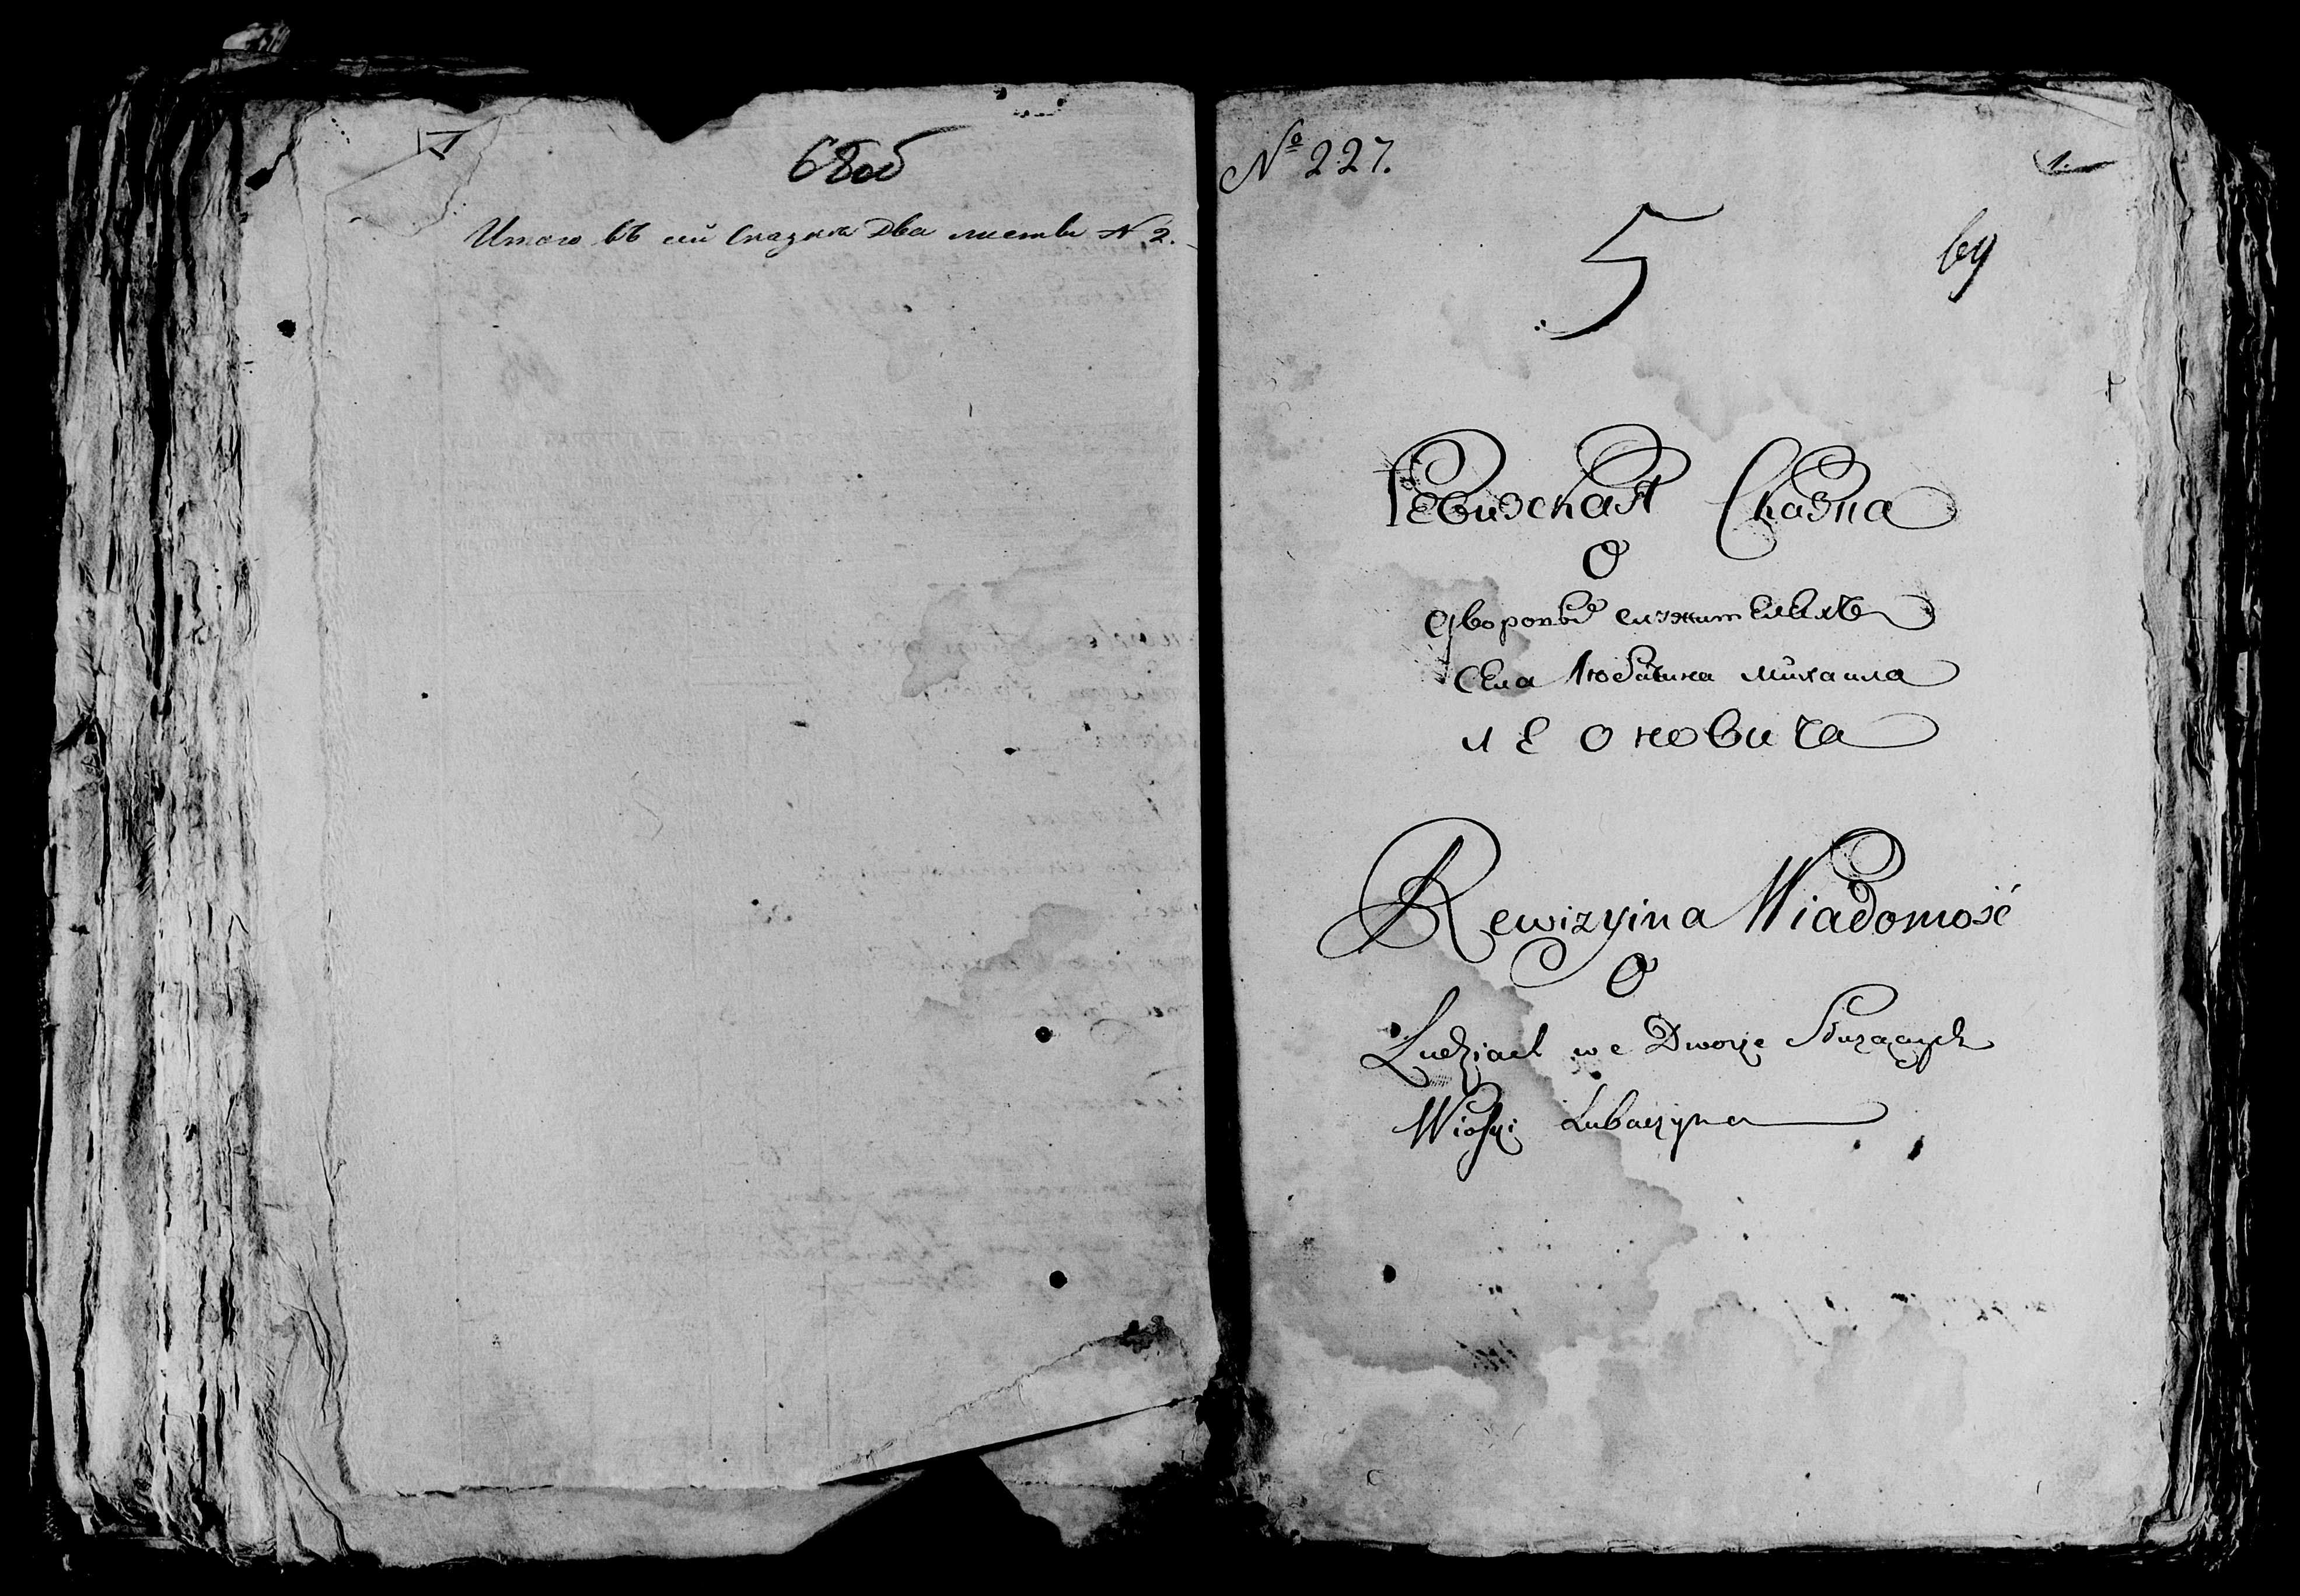 68об
Итого въ сей Сказкѣ Два листы N. 2.
№ 227.
1.
5
69
Ревизская Сказка
О
дворовых служителяхъ
Села Любачина михаила
леоновича
Rewizyina Wiadomość
O
Ludziach we Dworze Służących
Wioski Lubaczyna